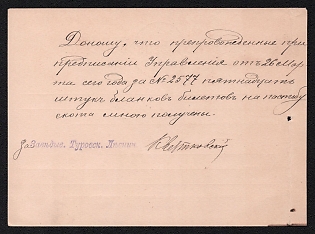 Доношу, что препровожденные при
предписанiи Управленiя отъ 26 Мар
та сего года за № 2577 пятнадцать
штукъ бланковъ билетовъ на пастьбу
скота мною получены.
Завѣдыв. Туровск. Лѣснич.